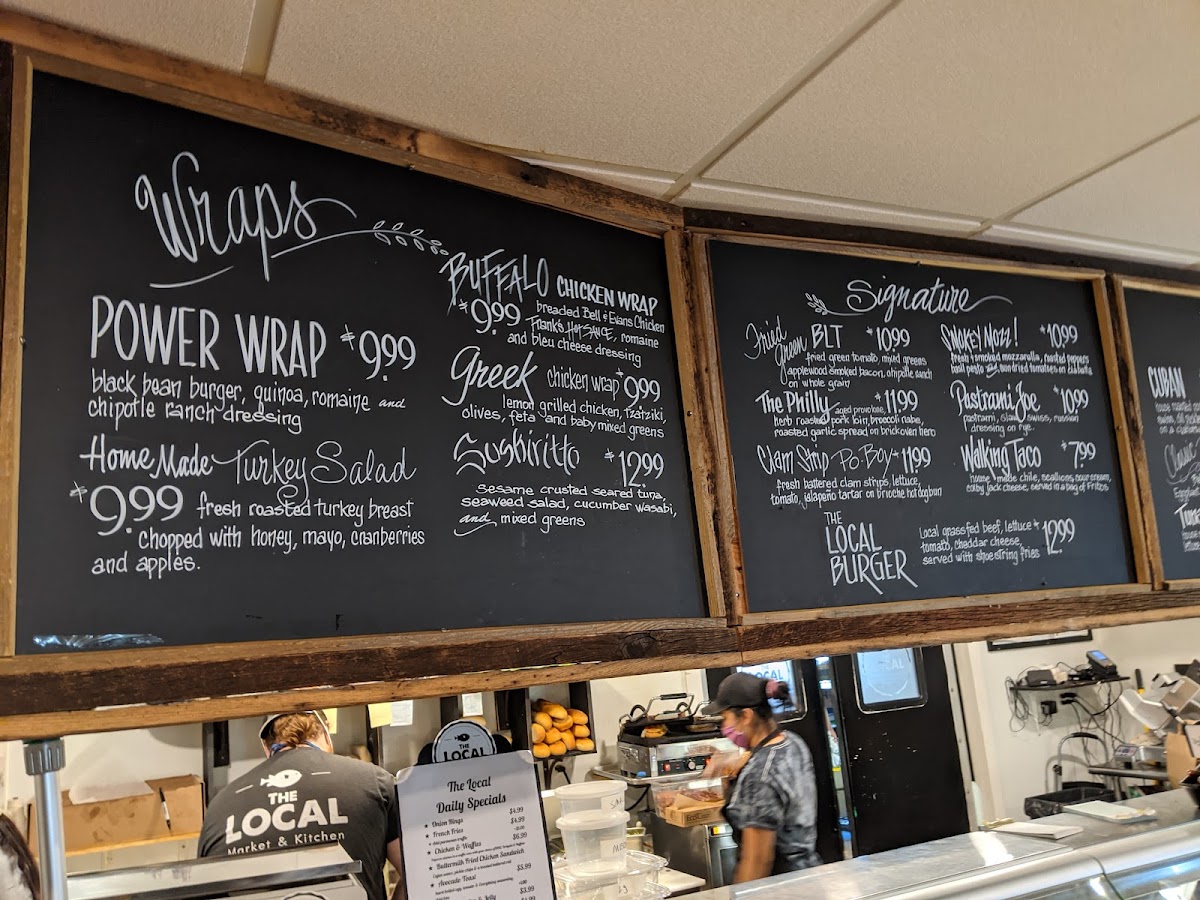 Wraps
POWER WRAP $9.99
black bean burger, quinoa, romaine and
chipotle ranch dressing
Home Made Turkey Salad
$9.99 fresh roasted turkey breast
chopped with honey, mayo, cranberries
and apples.
BUFFALO CHICKEN WRAP
$9.99 breaded Bell & Evans Chicken
Frank's Hot SAUCE, romaine
and bleu cheese dressing
Greek chicken wrap $9.99
lemon grilled chicken, tzatziki,
olives, feta and baby mixed greens
Sushiritto $12.99
sesame crusted seared tuna,
seaweed salad, cucumber wasabi,
and mixed greens
Signature
Fried Green BLT $10.99
fried green tomato, mixed greens
applewood smoked bacon, chipotle ranch
on whole grain
The Philly aged provolone, $11.99
herb roasted pork loin, broccoli rabe,
roasted garlic spread on brick oven hero
Clam Strip Po-Boy $11.99
fresh battered clam strips, lettuce,
tomato, jalapeño tartar on brioche hot dog bun
THE
LOCAL
BURGER
Local grassfed beef, lettuce $12.99
tomato, cheddar cheese,
served with shoestring fries
SMOKEY MOZZ! $10.99
fresh & smoked mozzarella, roasted peppers
basil pesto and sundried tomatoes on ciabatta
Pastrami Joe $10.99
pastrami, slaw, swiss, russian
dressing on rye.
Walking Taco $7.99
house made chile, scallions, sour cream,
colby jack cheese, served in a bag of Fritos
CUBAN
house roasted
on a
Classic
THE
LOCAL
Market & Kitchen
THE
LOCAL
The Local
Daily Specials
Onion Rings $4.99
French Fries $4.99
Chicken & Waffles $6.99
Buttermilk Fried Chicken Sandwich
Avocado Toast $5.99
& Jelly $3.99
LOCAL